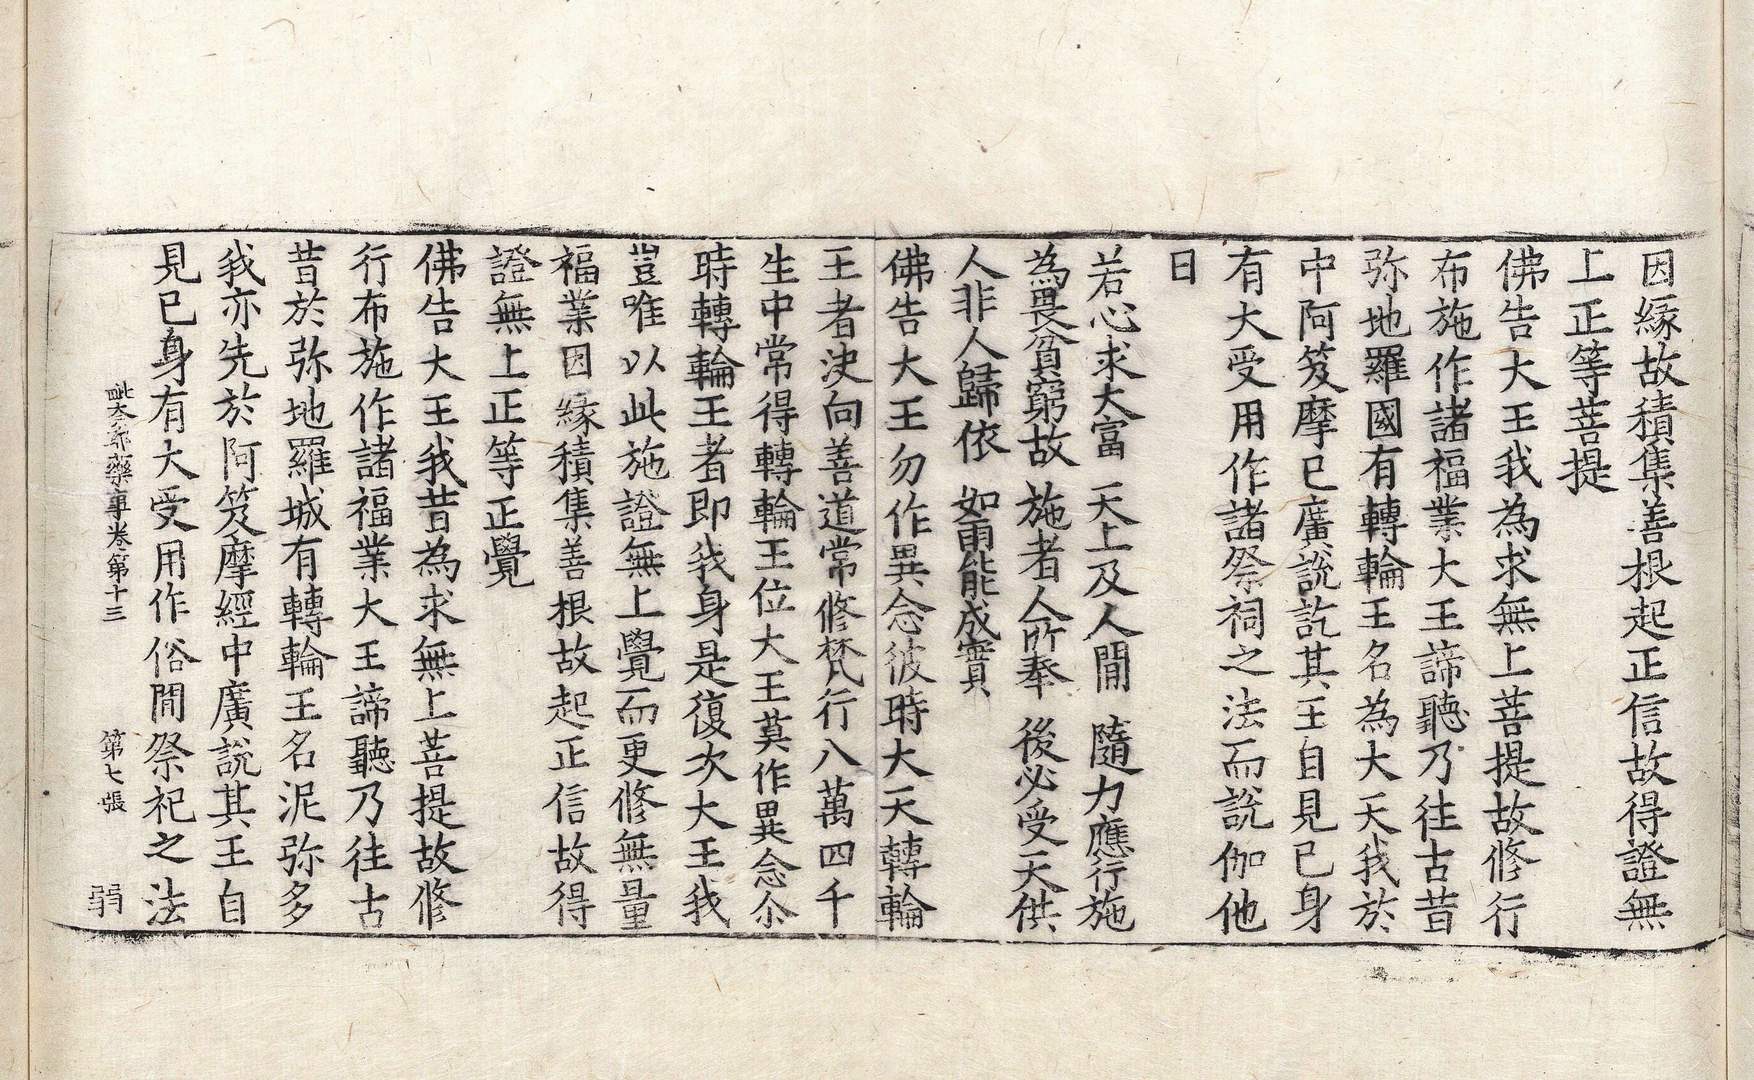 因緣故積集善根起正信故得證無
上正等菩提
佛告大王我為求無上菩提故修行
布施作諸福業大王諦聽乃往古昔
弥地羅國有轉輪王名為大天我於
中阿笈摩已廣說訖其王自見已身
有大受用作諸祭祠之法而說伽他
曰
若心求大富 天上及人間 隨力應行施
為畏貧窮故 施者人所奉 後必受天供
人非人歸依 如雨能成實
佛告大王勿作異念彼時大天轉輪
王者決向善道常修梵行八萬四千
生中常得轉輪王位大王莫作異念尒
時轉輪王者即我身是復次大王我
豈唯以此施證無上覺而更修無量
福業因緣積集善根故起正信故得
證無上正等正覺
佛告大王我昔為求無上菩提故修
行布施作諸福業大王諦聽乃往古
昔於弥地羅城有轉輪王名泥弥多
我亦先於阿笈摩經中廣說其王自
見已身有大受用作俗間祭祀之法
毗奈耶藥事卷第十三 第七張 弱